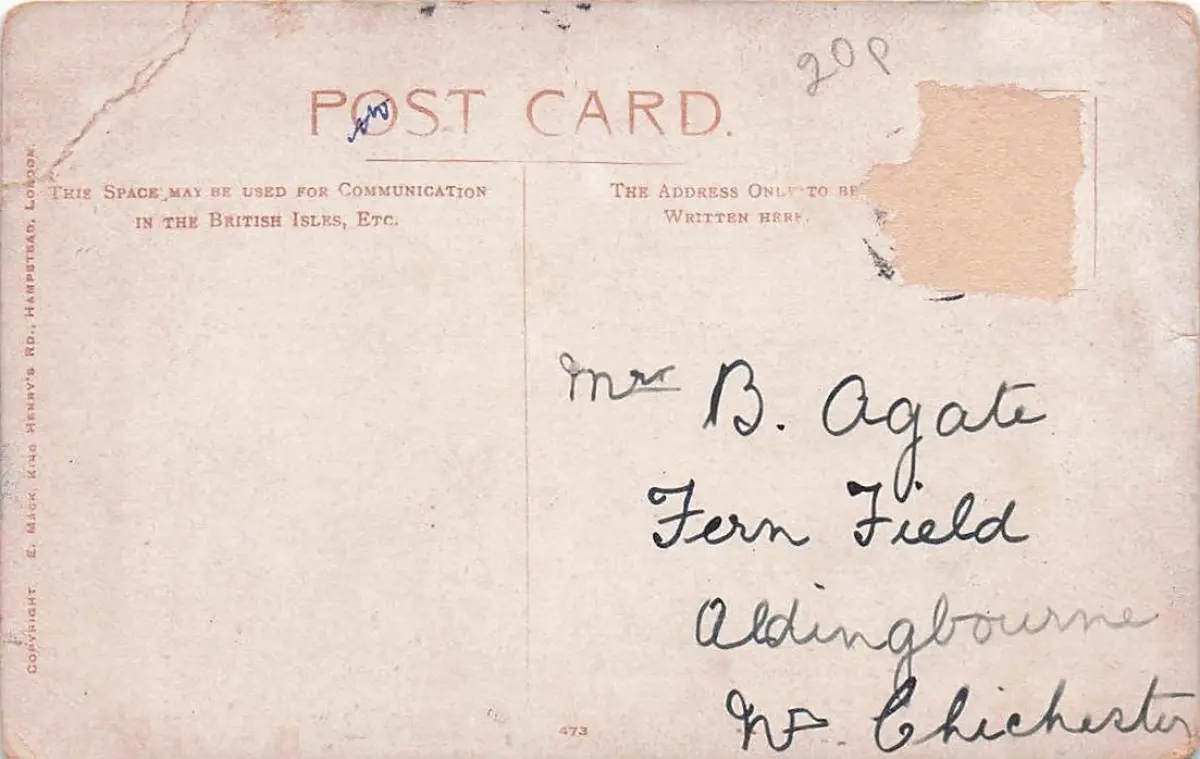 20p
POST CARD.
THIS SPACE MAY BE USED FOR COMMUNICATION
IN THE BRITISH ISLES, ETC.
THE ADDRESS ONLY TO BE
WRITTEN HERE.
COPYRIGHT E. MACK, KING HENRY'S RD., HAMPSTEAD, LONDON.
Mrs B. Agate
Fern Field
Aldingbourne
Nr Chichester
473